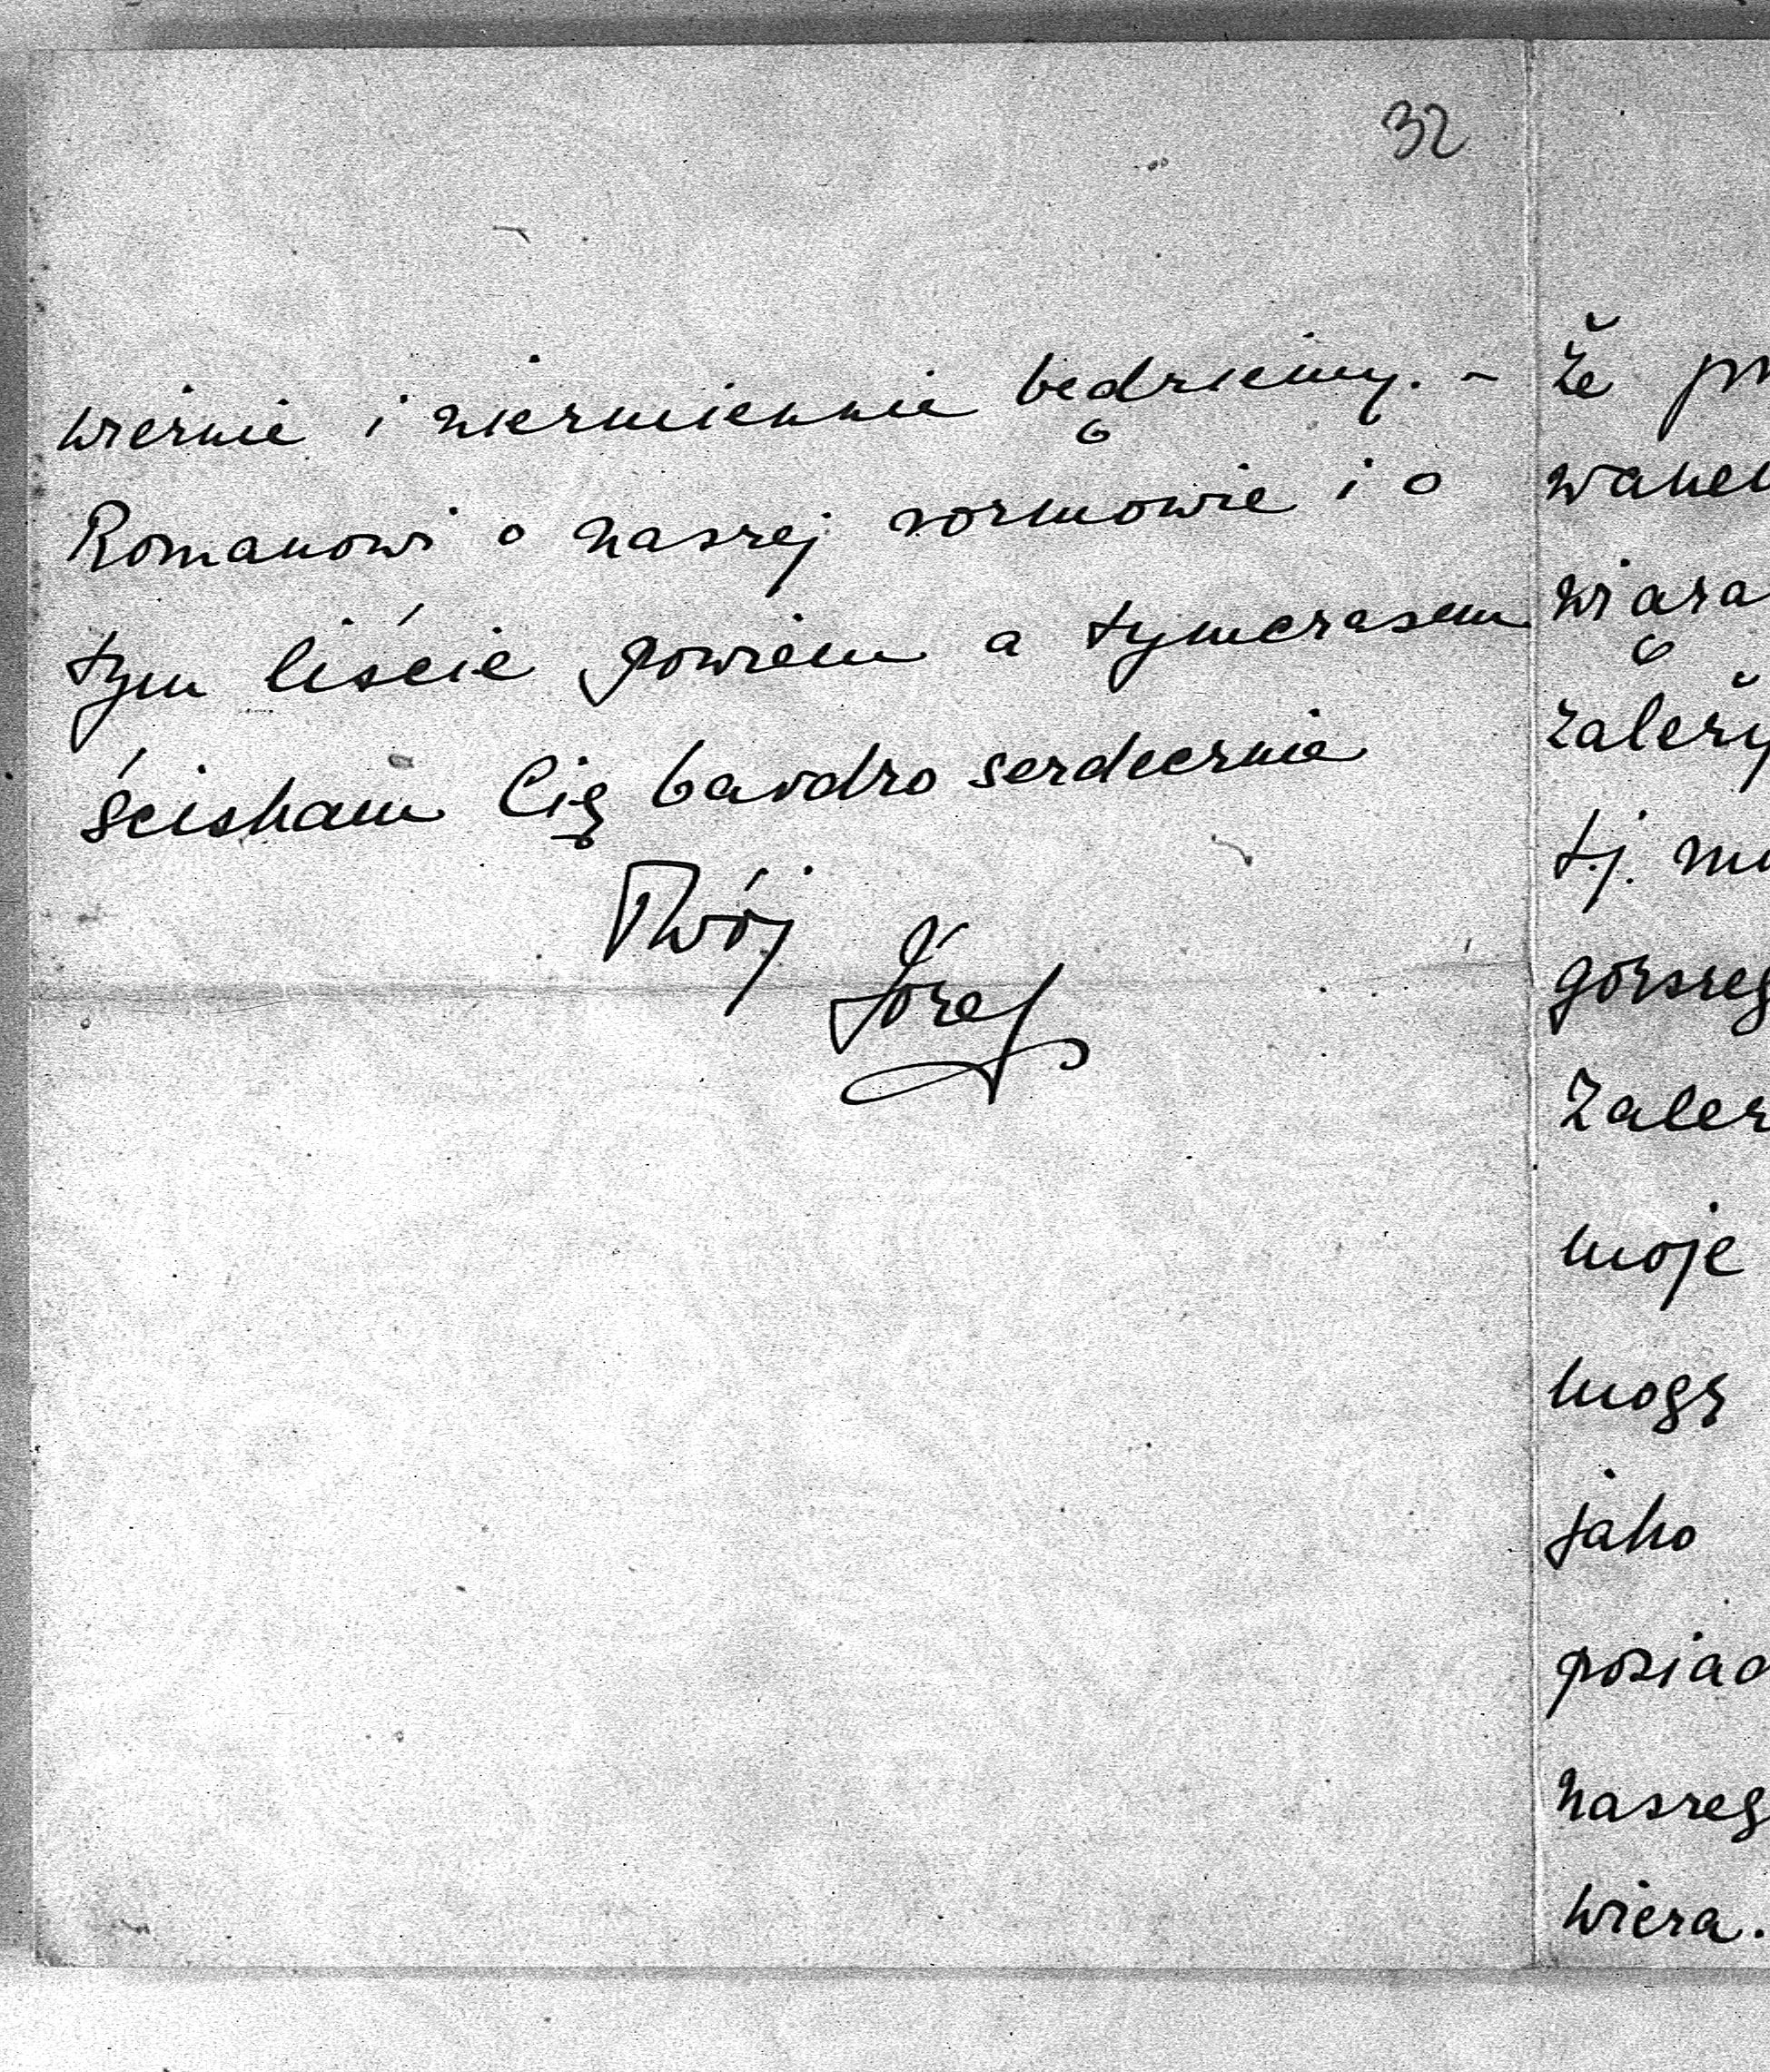 32
wiernie i niezmiennie będziemy. -
Romanowi o naszej rozmowie i o
tym liście powiem a tymczasem
ściskam Cię bardzo serdecznie
Twój
Józef
że
wiąza
zależy
t.j.
gorszeg
Zależ
moje
mogę
jako
posiad
naszeg
wiera.